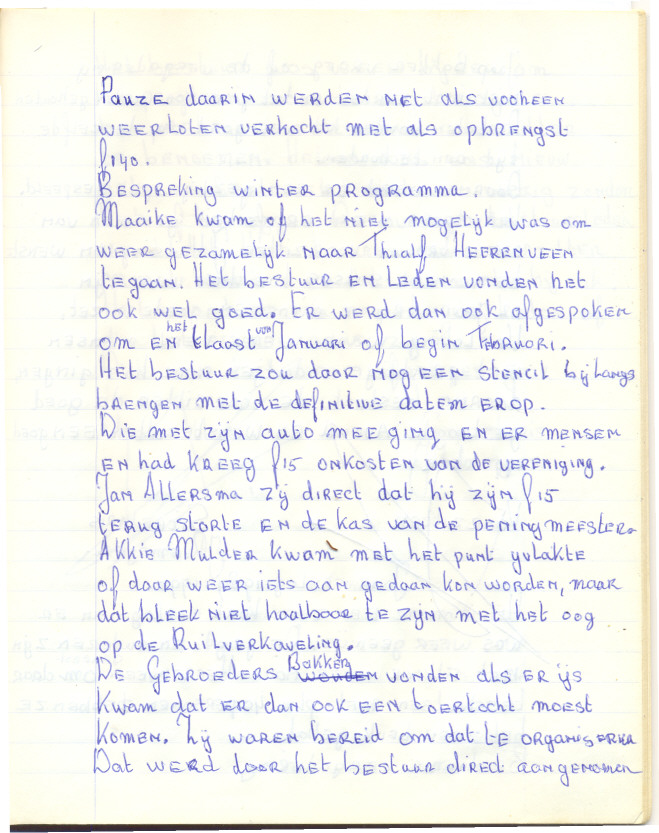 Pauze daarin werden net als voorheen
weer loten verkocht met als opbrengst
f 140.
Bespreking winter programma.
Maaike kwam of het niet mogelijk was om
weer gezamelijk naar Thialf Heerenveen
tegaan. Het bestuur en leden vonden het
ook wel goed. Er werd dan ook afgespoken
om en het laast van Januari of begin Februori.
Het bestuur zou daar nog een stencil bij langs
brengen met de definitive datem erop.
Die met zijn auto mee ging en er mensen
en had kreeg f 15 onkosten van de vereniging.
Jan Allersma zij direct dat hij zijn f 15
terug storte en de kas van de peningmeester.
Akkie Mulder kwam met het punt ijvlakte
of daar weer iets aan gedaan kon worden, maar
dat bleek niet haalbaar te zijn met het oog
op de Ruilverkaveling.
De Gebroeders Bakker vonden als er ijs
kwam dat er dan ook een toertocht moest
komen. Zij waren bereid om dat te organiseren
Dat werd door het bestuur direct aangenomen